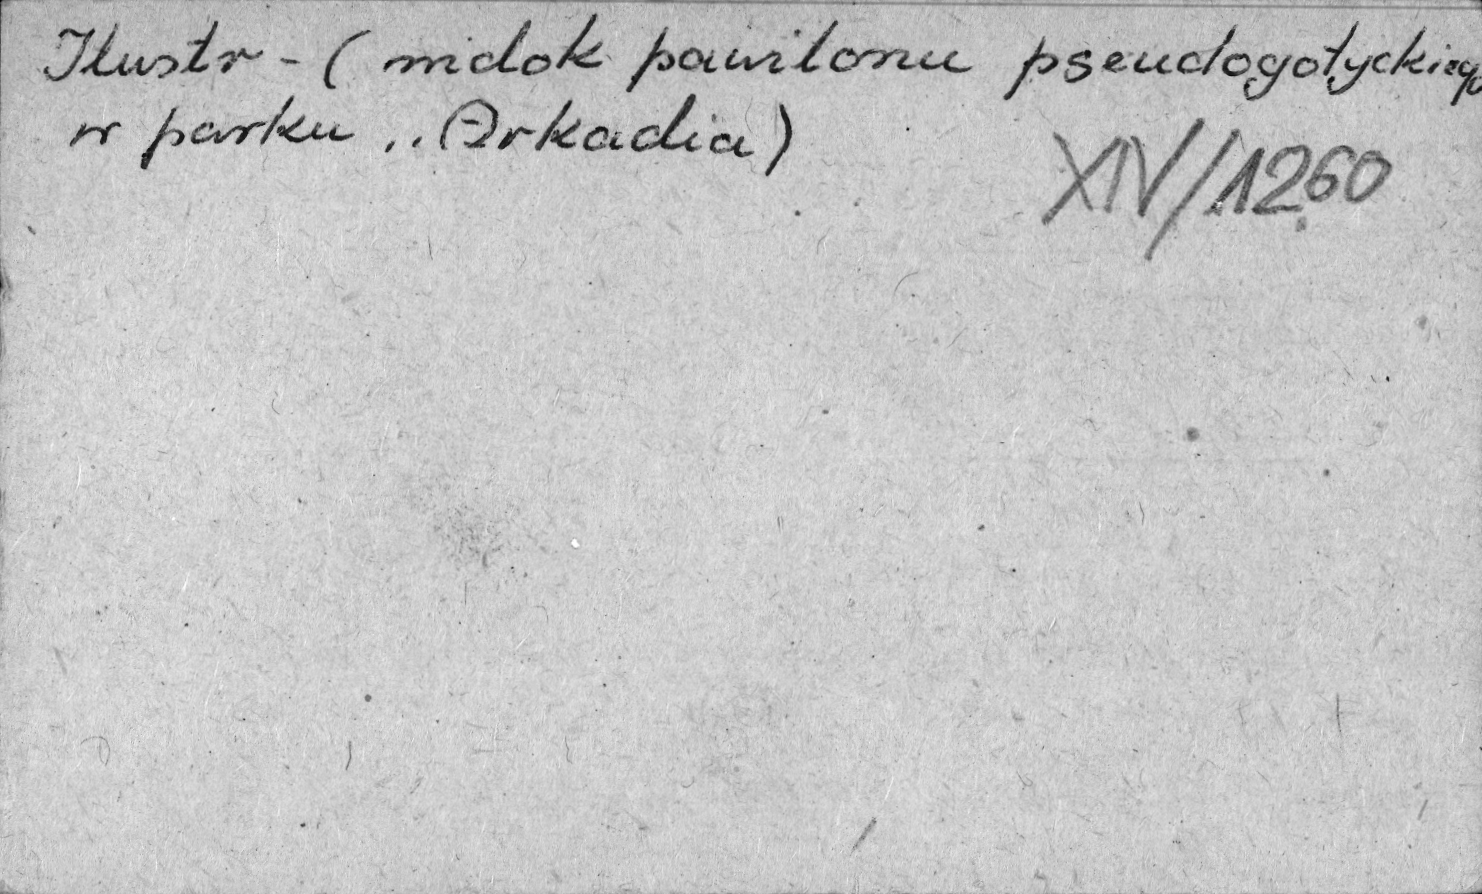 Ilustr - (widok pawilonu pseudogotyckiego
w parku ,,Arkadia)
XIV/1260